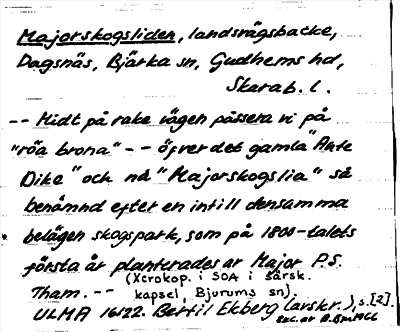 Majorskogsliden, landsvägsbacke,
Dagsnäs, Bjärka sn, Gudhems hd,
Skarab. l.
-- Midt på rake vägen passera vi på
"röa brona" -- öfver det gamla "Ante
Dike" och nå "Majorskogslia" så
benämnd efter en intill densamma
belägen skogspark, som på 1800-talets
första år planterades av Major P.S.
Tham. -- (Xerokop. i SOA i särsk.
kapsel, Bjurums sn).
ULMA 16122. Bertil Ekberg (avskr.), s. [2].
exc. av